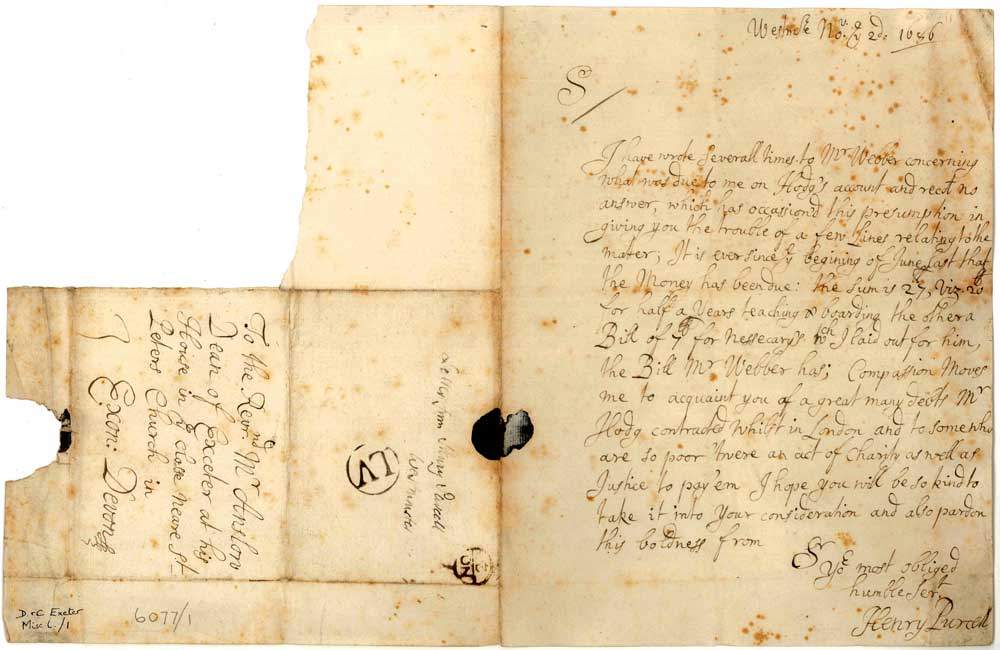 Westmr Nov. ye 2d. 1686
Sr/
I have wrote severall times to Mr Webber concerning
what was due to me on Hodg's account and recd no
answer, which has occassion'd this presumption in
giving you the trouble of a few Lines relating to the
mater; It is ever since ye begining of June last that
the Money has been due: the sum is 27£, viz 20£
for half a years teaching & boarding the other a
Bill of 7£ for nessecary's wch I laid out for him,
the Bill Mr Webber has; Compassion Moves
me to acquaint you of a great many debts Mr
Hodg contracted whilst in London and to some who
are so poor 'twere an act of Charity as well as
Justice to pay 'em I hope you will be so kind to
take it into your consideration and also pardon
this boldness from
Sr
Yor most obliged
humble Sert
Henry Purcell
To the Revrnd Mr Anslow
Dean of Exceter at his
House in ye close neare St
Peters Church in
Exon: Devonsh
7
Letter from Purcell
LV
D. & C. Exeter
Misc L./1
6077/1